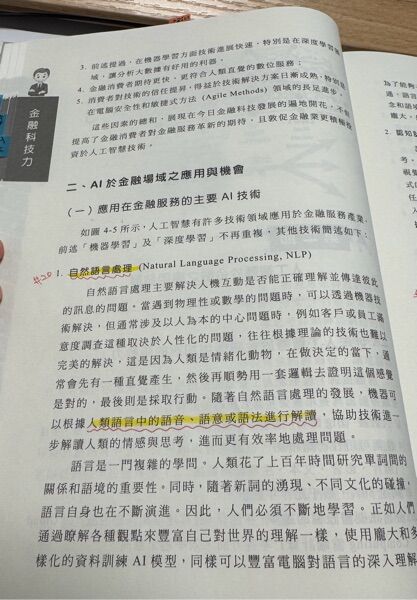 3. 前述提過，在機器學習方面技術進展快速，特別是在深度學習領
域，讓分析大數據有好用的利器。
4. 金融消費者期待更快、更符合人類直覺的數位服務；
5. 消費者對技術的信任提昇，得益於技術解決方案日漸成熟，特別是
在電腦安全性和敏捷式方法 (Agile Methods) 領域的長足進步。
這些因素的總和，展現在今日金融科技發展的遍地開花，不但
提高了金融消費者對金融服務革新的期待，且敦促金融業更積極投
資於人工智慧技術。
二、AI 於金融場域之應用與機會
（一）應用在金融服務的主要 AI 技術
如圖 4-5 所示，人工智慧有許多技術領域應用於金融服務產業，
前述「機器學習」及「深度學習」不再重複，其他技術簡述如下：
#20
1. 自然語言處理 (Natural Language Processing, NLP)
自然語言處理主要解決人機互動是否能正確理解並傳達彼此
的訊息的問題。當遇到物理性或數學的問題時，可以透過機器技
術解決，但通常涉及以人為本的中心問題時，例如客戶或員工滿
意度調查這種取決於人性化的問題，往往根據理論的技術也難以
完美的解決，這是因為人類是情緒化動物，在做決定的當下，通
常會先有一種直覺產生，然後再順勢用一套邏輯去證明這個感覺
是對的，最後則是採取行動。隨著自然語言處理的發展，機器可
以根據人類語言中的語音、語意或語法進行解讀，協助技術進一
步解讀人類的情感與思考，進而更有效率地處理問題。
語言是一門複雜的學問。人類花了上百年時間研究單詞間的
關係和語境的重要性。同時，隨著新詞的湧現、不同文化的碰撞，
語言自身也在不斷演進。因此，人們必須不斷地學習。正如人們
通過瞭解各種觀點來豐富自己對世界的理解一樣，使用龐大和多
樣化的資料訓練 AI 模型，同樣可以豐富電腦對語言的深入理解
金融科技力